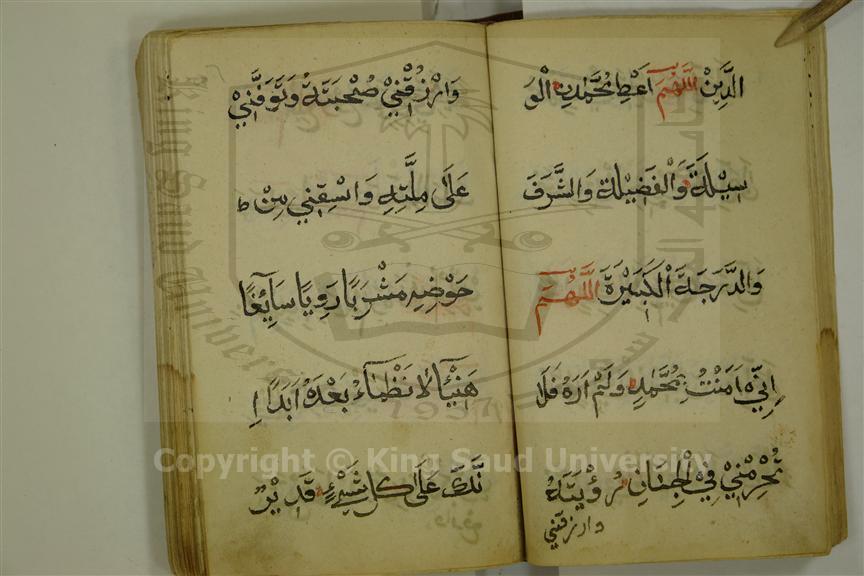 الدِّينْ اَللّٰهُمَّ اَعْطِ مُحَمَّدِ الْوَ
سِيْلَةَ وَالْفَضِيْلَةَ وَالشَّرَفَ
وَالدَّرَجَةَ الْكَبِيْرَةَ اَللّٰهُمَّ
اِنِّيْ اٰمَنْتُ بِمُحَمَّدٍ وَلَمْ اَرَهُ فَلَا
تَحْرِمْنِيْ فِيْ الْجِنَانِ رُؤْيَتَهُ
وارزقني
وَارْزُقْنِيْ صُحْبَتَهُ وَتَوَفَّنِيْ
عَلَى مِلَّتِهِ وَاسْقِنِي مِنْ
حَوْضِهِ مَشْرَبًا رَوِيًّا سَآئِغًا
هَنِيْئًا لَا نَظْمَاءُ بَعْدَهُ اَبَدًا اِ
نَّكَ عَلَى كُلِّ شَيْءٍ قَدِيْرٌ
Copyright © King Saud University
1957